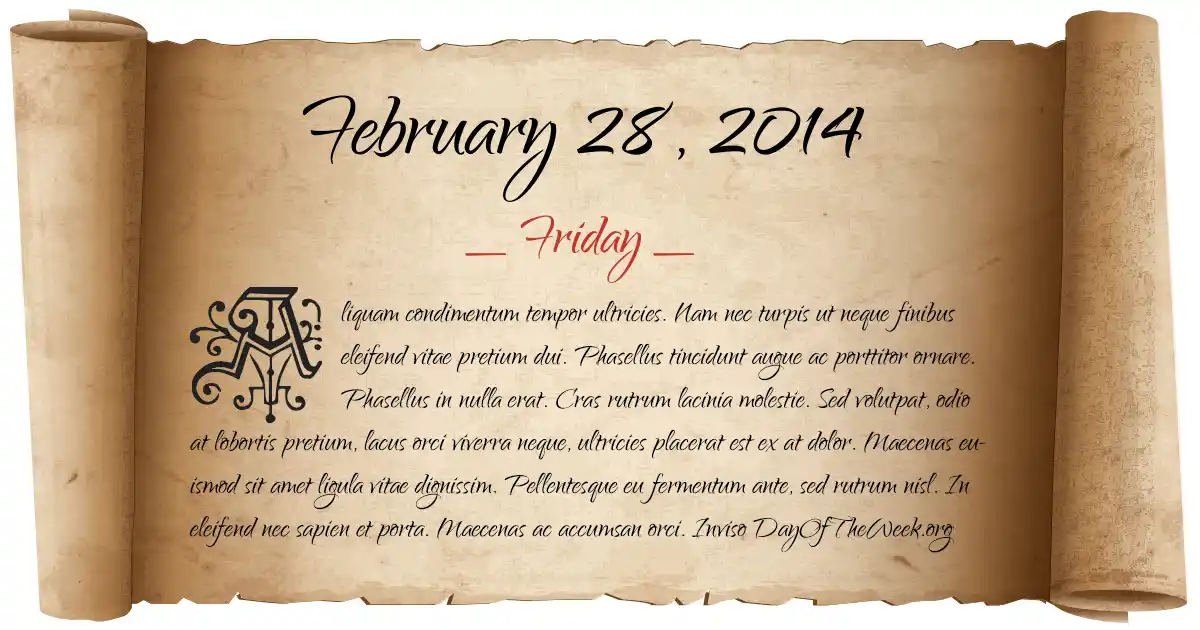 February 28, 2014
— Friday —
Aliquam condimentum tempor ultricies. Nam nec turpis ut neque finibus
eleifend vitae pretium dui. Phasellus tincidunt augue ac porttitor ornare.
Phasellus in nulla erat. Cras rutrum lacinia molestie. Sed volutpat, odio
at lobortis pretium, lacus orci viverra neque, ultricies placerat est ex at dolor. Maecenas eu-
ismod sit amet ligula vitae dignissim. Pellentesque eu fermentum ante, sed rutrum nisl. In
eleifend nec sapien et porta. Maecenas ac accumsan orci. Inviso DayOfTheWeek.org